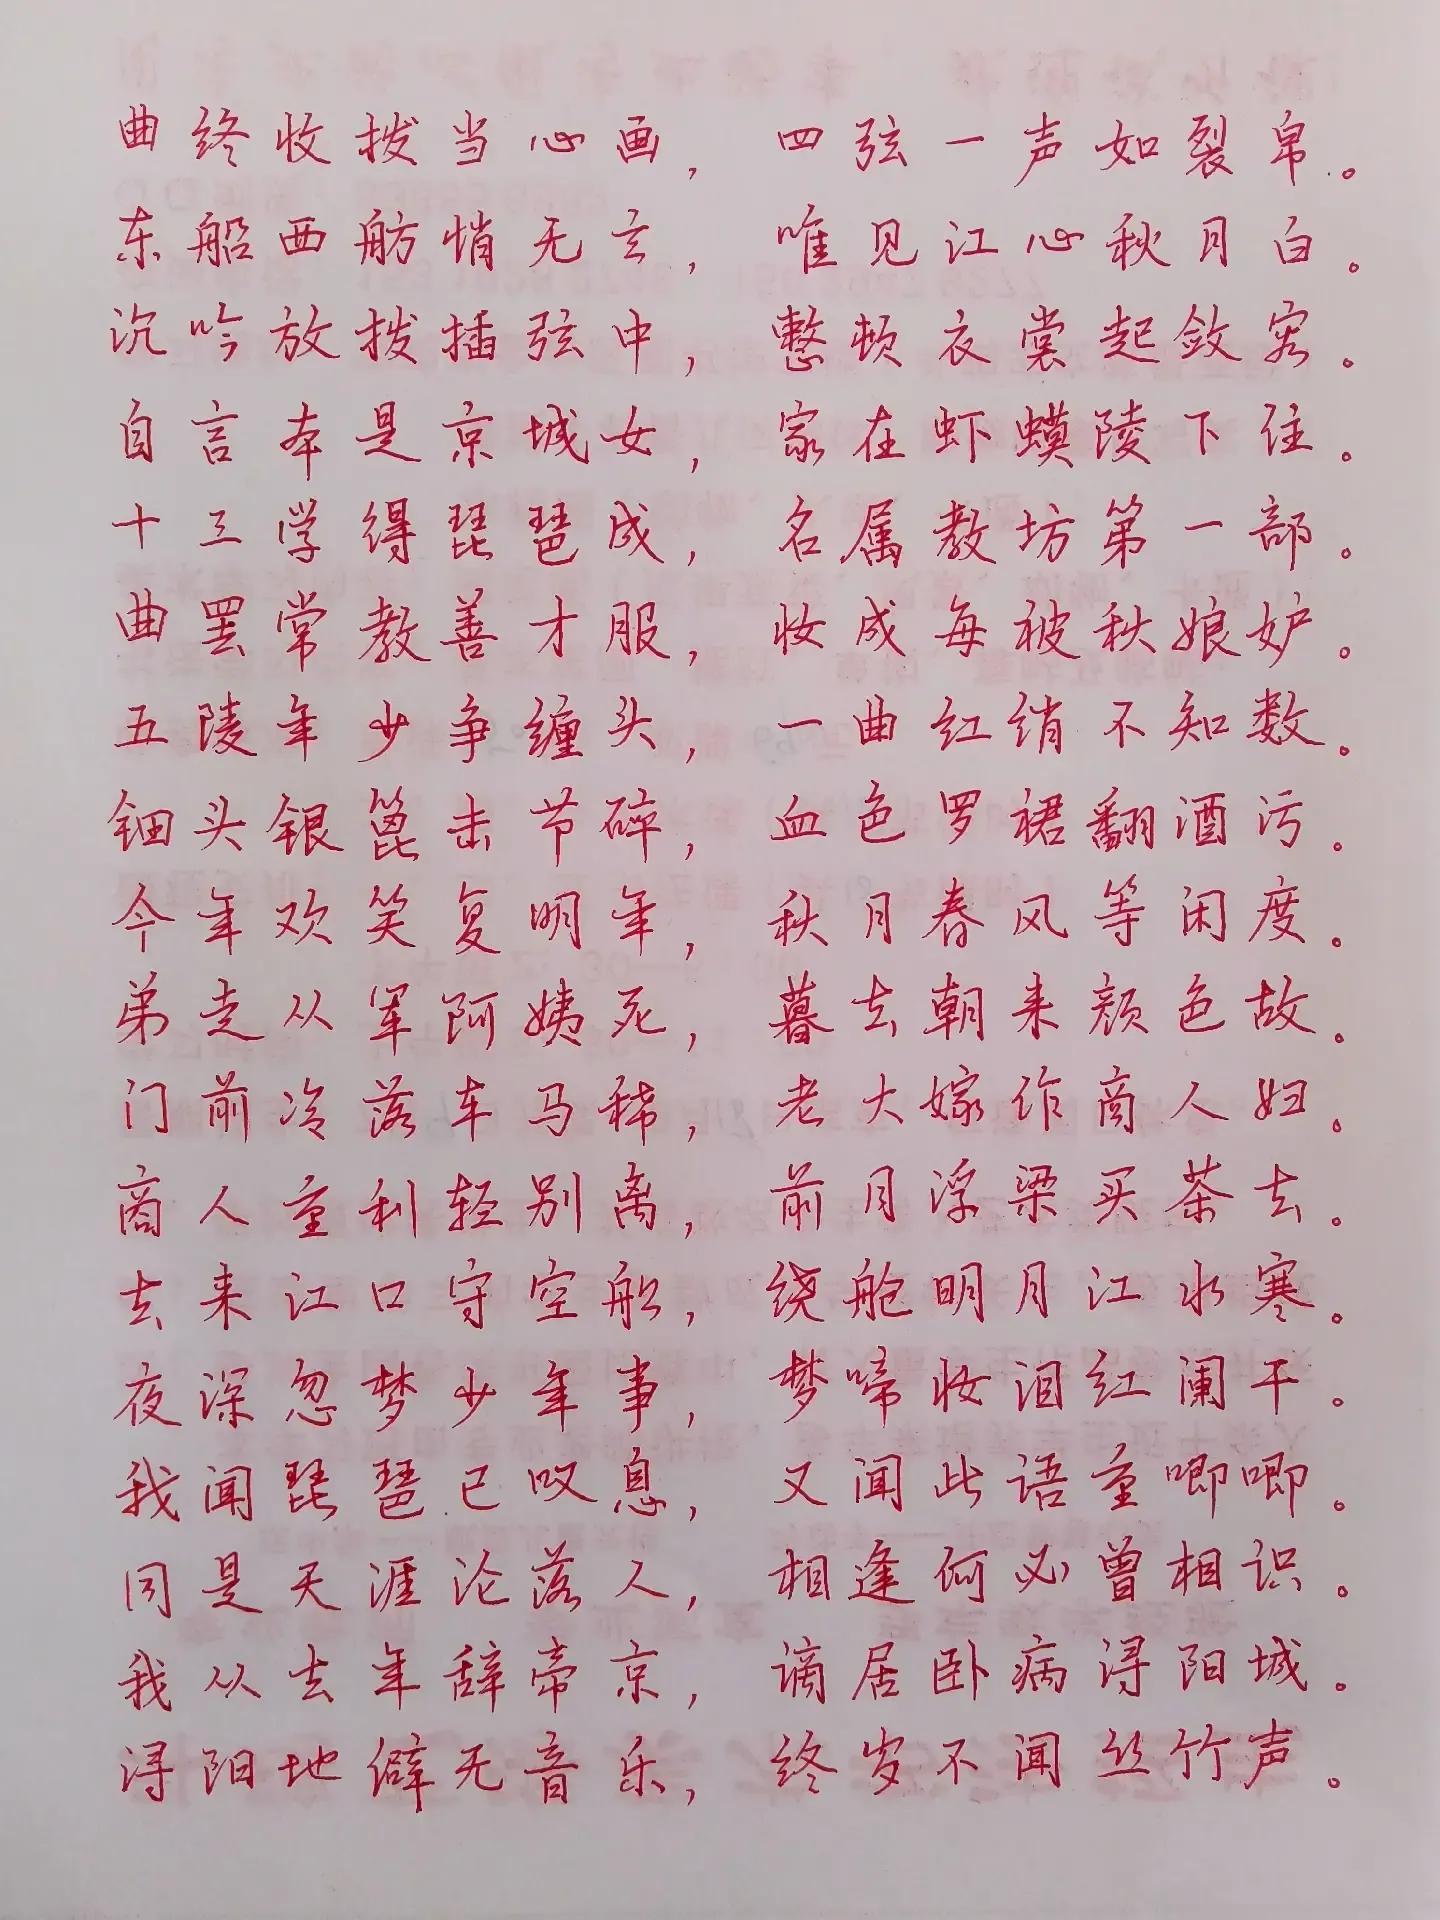 曲终收拨当心画，四弦一声如裂帛。
东船西舫悄无言，唯见江心秋月白。
沉吟放拨插弦中，整顿衣裳起敛容。
自言本是京城女，家在虾蟆陵下住。
十三学得琵琶成，名属教坊第一部。
曲罢常教善才服，妆成每被秋娘妒。
五陵年少争缠头，一曲红绡不知数。
钿头银篦击节碎，血色罗裙翻酒污。
今年欢笑复明年，秋月春风等闲度。
弟走从军阿姨死，暮去朝来颜色故。
门前冷落车马稀，老大嫁作商人妇。
商人重利轻别离，前月浮梁买茶去。
去来江口守空船，绕舱明月江水寒。
夜深忽梦少年事，梦啼妆泪红阑干。
我闻琵琶已叹息，又闻此语重唧唧。
同是天涯沦落人，相逢何必曾相识。
我从去年辞帝京，谪居卧病浔阳城。
浔阳地僻无音乐，终岁不闻丝竹声。